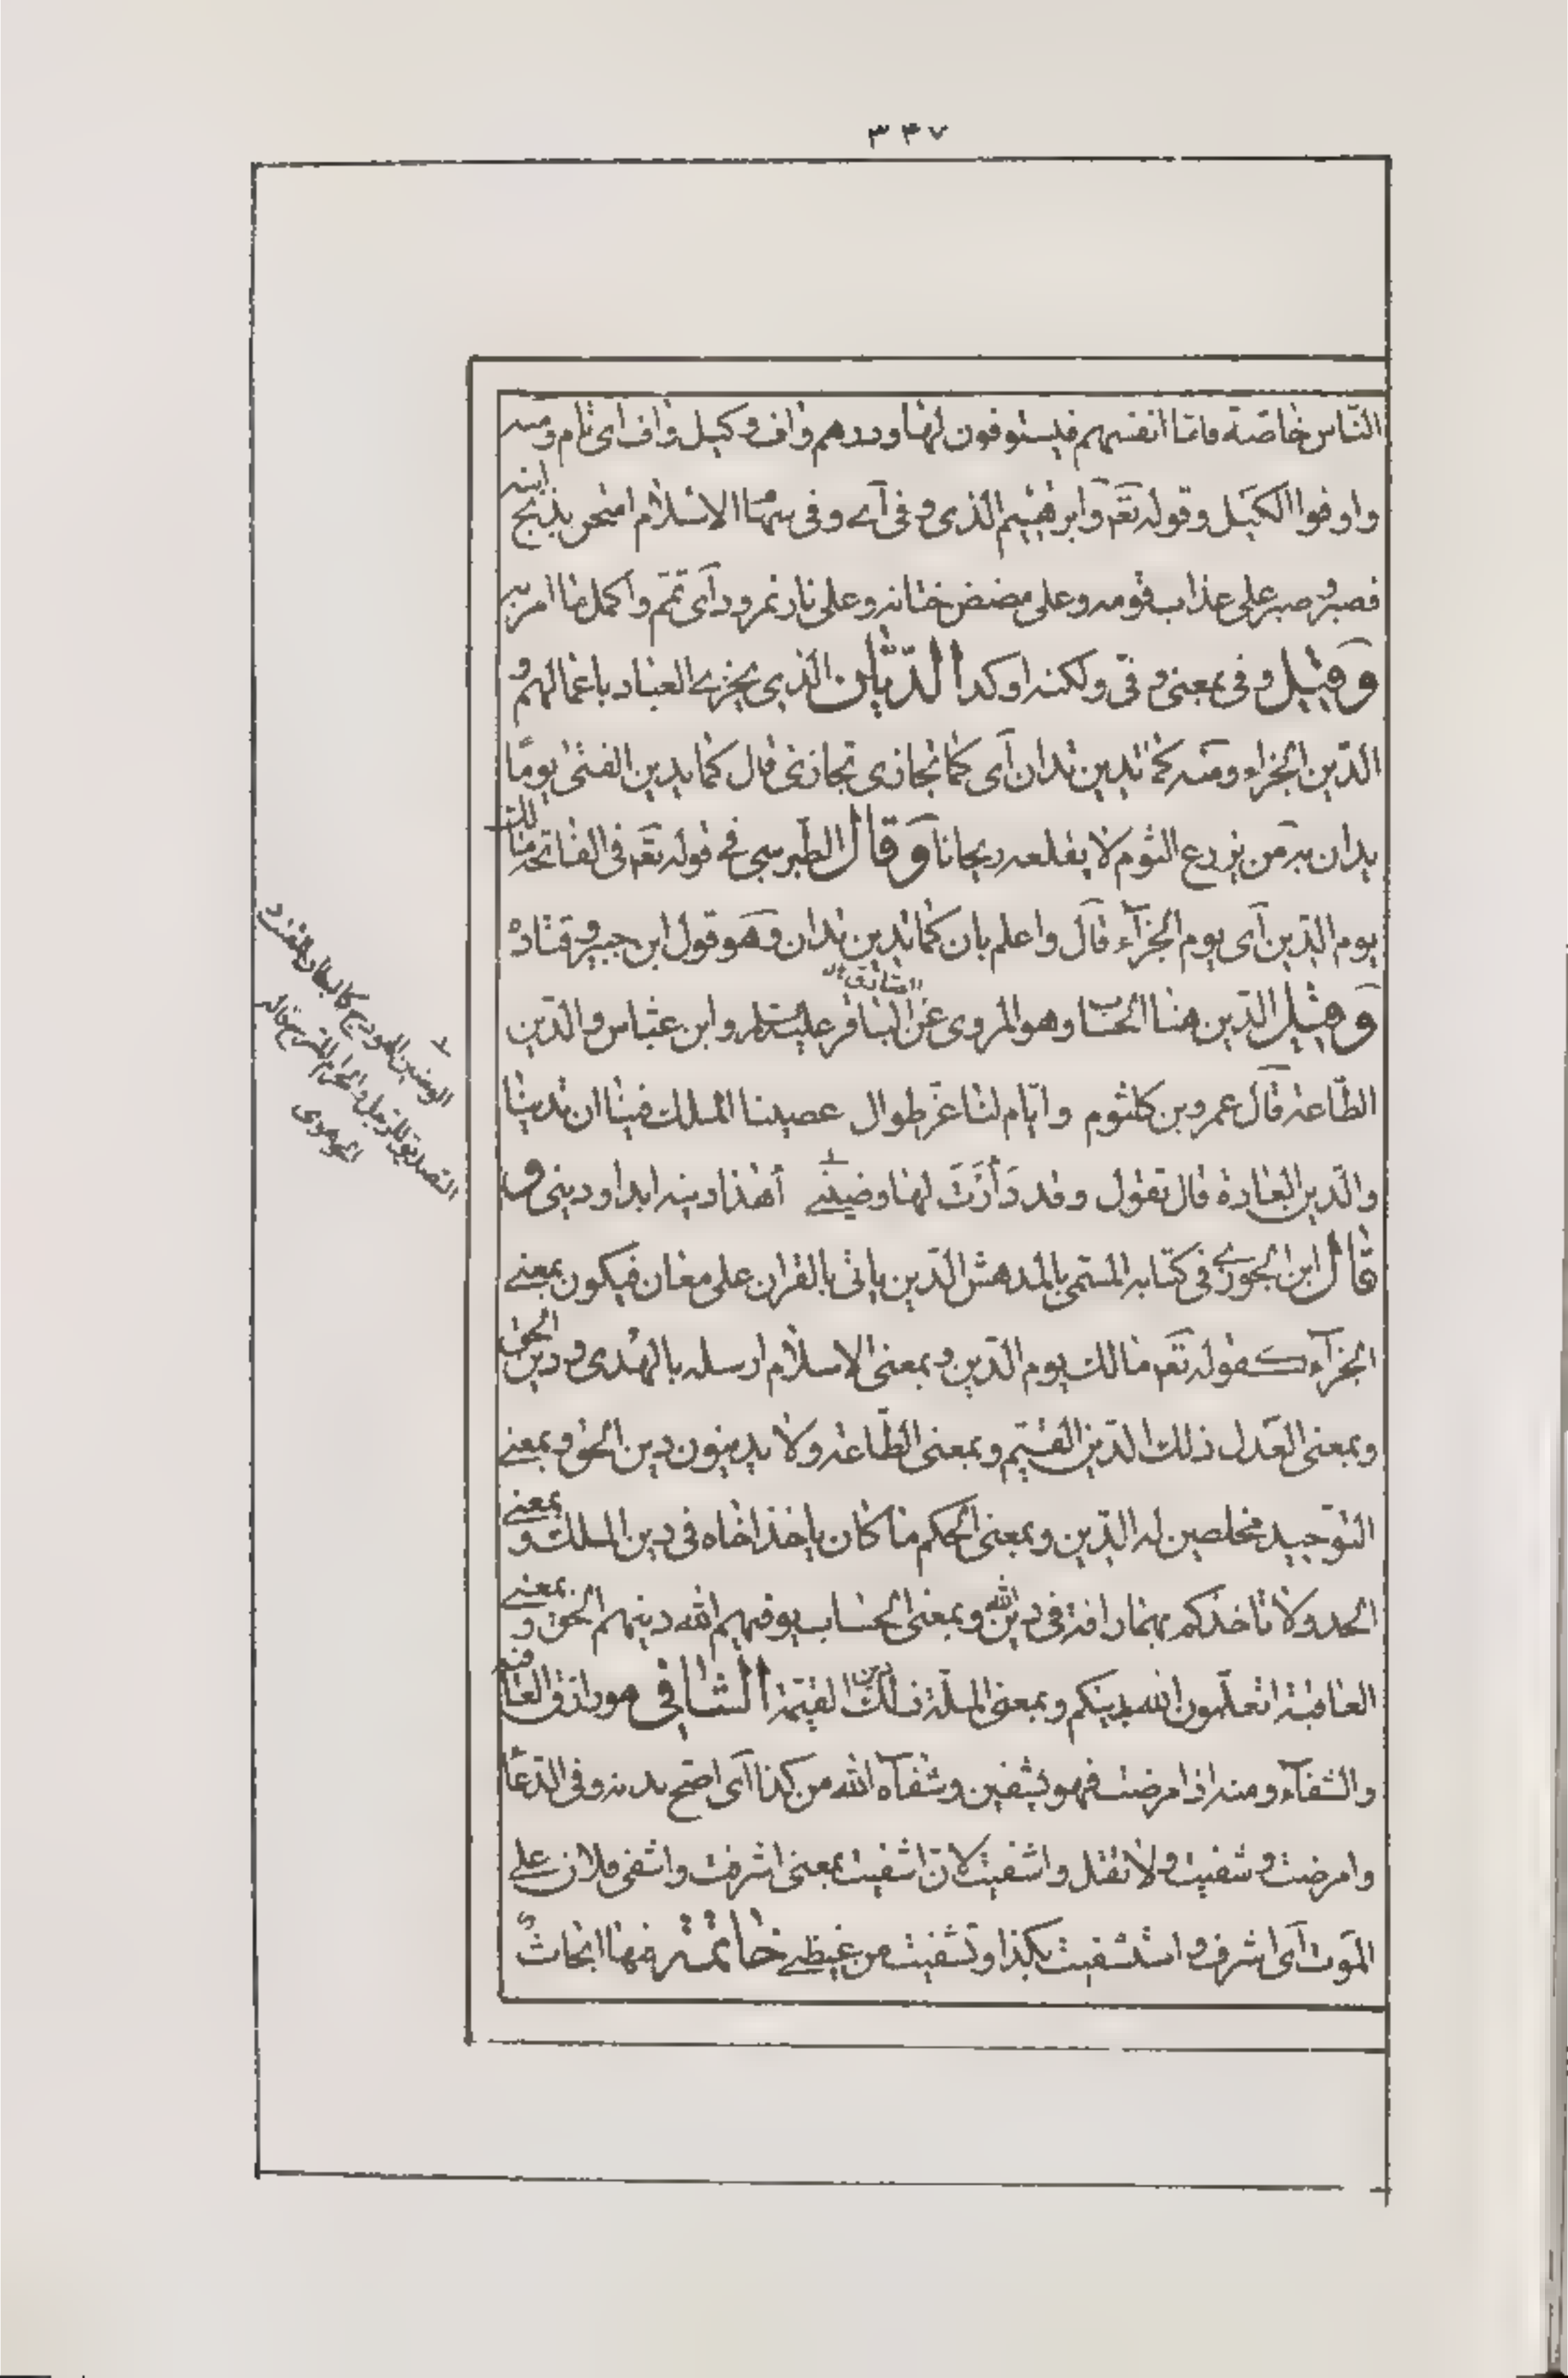 ٣٤٧
الناس خاصة فامّا انفسهم فيستوفون لها ودرهم واف وكيل واف اى تام ومنه
واوفوا الكيل وقوله تعٓ وابرهيم الذى وفى آى وفى سهام الاسلام امتحن بذبح ابنه
فصبر وصبر على عذاب قومه وعلى مضض ختانه وعلى نار نمرود آى تمّم واكمل ما امر به
وقيل وفى بمعنى وفّى ولكنه اوكد الدّيّان الذى يجزى العباد باعمالهم و
الدّين الجزاء ومنه كما تدين تدان آى كما تجازى تجازى قال كما يدين الفتى يومًا
يدان به من يزرع الثوم لا يقلعه ريحانا وقال الطبرسى فى قوله تعٓ فى الفاتحة مالك
يوم الدّين آى يوم الجزآء قال واعلم بان كما تدين تدان وهو قول ابن جبير وقتادة
وقيل الدّين هنا الحساب وهو المروى عن الباقر عليه السلم وابن عباس والدّين
الطّاعة قال عمرو بن كلثوم وايّام لنا غرّ طوال عصينا الملك فينا ان ندينا
والدّين العادة قال تقول وقد دَأَرَتَ لها وضينى أهذا دينه ابدا ودينى و
قال ابن الجوزى فى كتابه المسمّى بالمدهش الدّين ياتى بالقران على معان فيكون بمعنى
الجزآء كقوله تعٓ مالك يوم الدّين وبمعنى الاسلام ارسله بالهدى ودين الحق
وبمعنى العدل ذلك الدّين القيّم وبمعنى الطّاعة ولا يدينون دين الحق وبمعنى
التوحيد مخلصين له الدّين وبمعنى الحكم ما كان ياخذ اخاه فى دين الملك وبمعنى
الحد ولا تاخذكم بهما رافة فى دين الله وبمعنى الحساب يوفيهم الله دينهم الحق وبمعنى
العاقبة اتعلّمون الله بدينكم وبمعنى الملّة ذلك دين القيّمة الشافى هو رازق العافية
والشفآء ومنه اذا مرضت فهو يشفين وشفآه الله من كذا آى اصحّ بدنه وفى الدعآ
وامرضت وشفيت ولا تقل واشفيت لانّ اشفيت بمعنى اشرفت واشفى فلان على
الموت آى اشرف و استشفيت بكذا وتشفيت من غيظى خاتمة فها ابحاث
الوضين للهودج كالبطان للقتب
التصدير للرحل والحزام للسرج قاله
الجوهرى